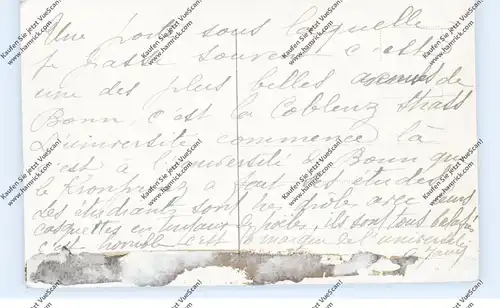 Une porte sous laquelle
je passe souvent c'est
une des plus belles de
Bonn, c'est la Coblenz Strass
L'université commence là
c'est à l'université de Bonn que
le Kronprinz a fait ses études
Les étudiants sont très avec leurs
casquettes en de, ils sont tous balafrés
c'est horrible c'est la marque de l'université
Kaufen Sie jetzt VueScan!
www.hamrick.com